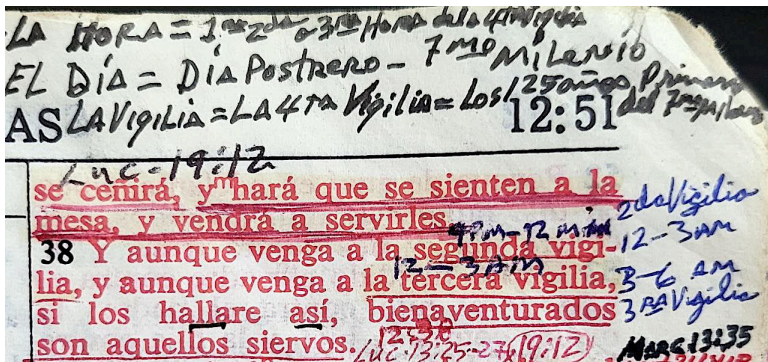 LA HORA = 1ra 2da o 3ra Hora de la 4ta Vigilia
EL DÍA = DÍA POSTRERO - 7mo MiLenio
LA VIGILIA = LA 4TA Vigilia = Los 125 años Primeros del 7mo
AS 12:51
Luc-19:12
se ceñirá, y hará que se sienten a la
mesa, y vendrá a servirles.
2da Vigilia
9PM-12
38 Y aunque venga a la segunda vigi-
12-3AM
12-3AM
lia, y aunque venga a la tercera vigilia,
3-6 AM
3RA Vigilia
si los hallare así, bienaventurados
son aquellos siervos.
Luc-13:25-27
(19:12)
MARC 13:35